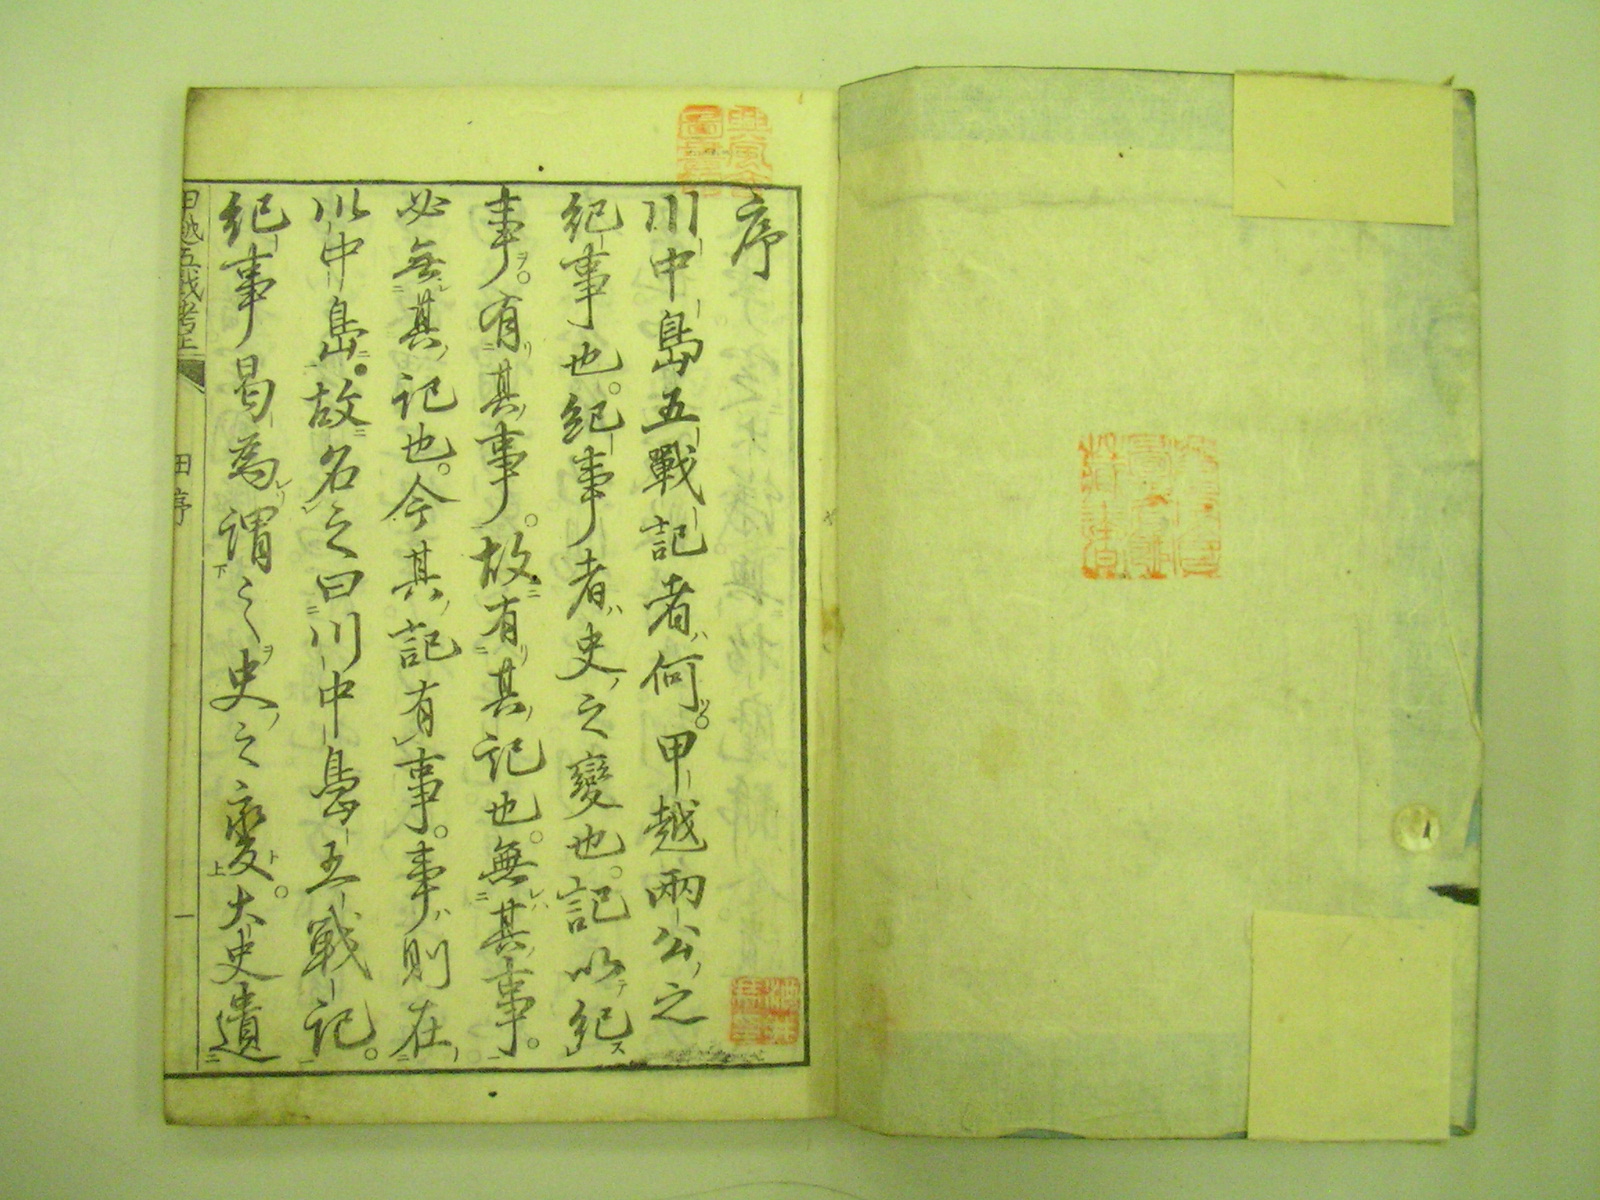 序
川中島五戰記者何。甲越兩公之
紀事也。紀事者史之變也。記以紀
事。有其事。故有其記也。無其事。
必無其記也。今其記有事。事則在
川中島。故名之曰川中島五戰記。
紀事曷為謂之史之變。大史遺
甲越五戰考上
田序
一